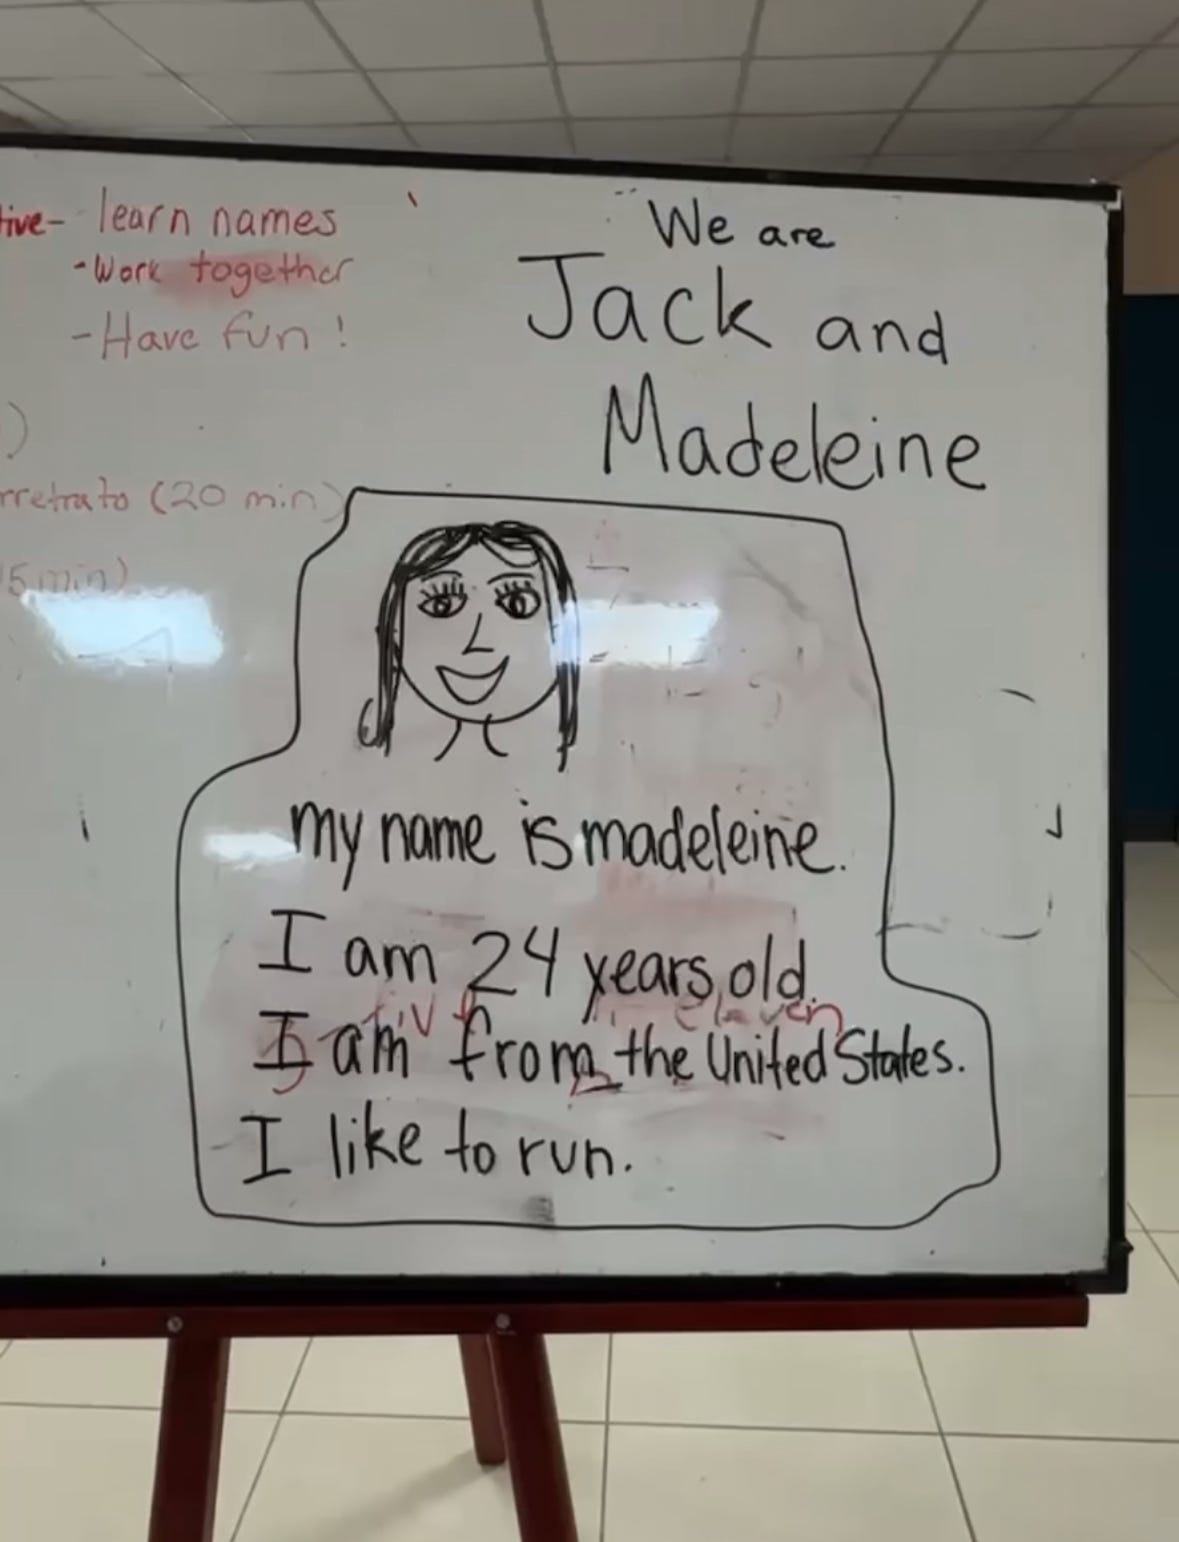 learn names
- Work together
- Have fun!
(20 min)
We are
Jack and
Madeleine
my name is madeleine.
I am 24 years old.
I am from the United States.
I like to run.
eleven